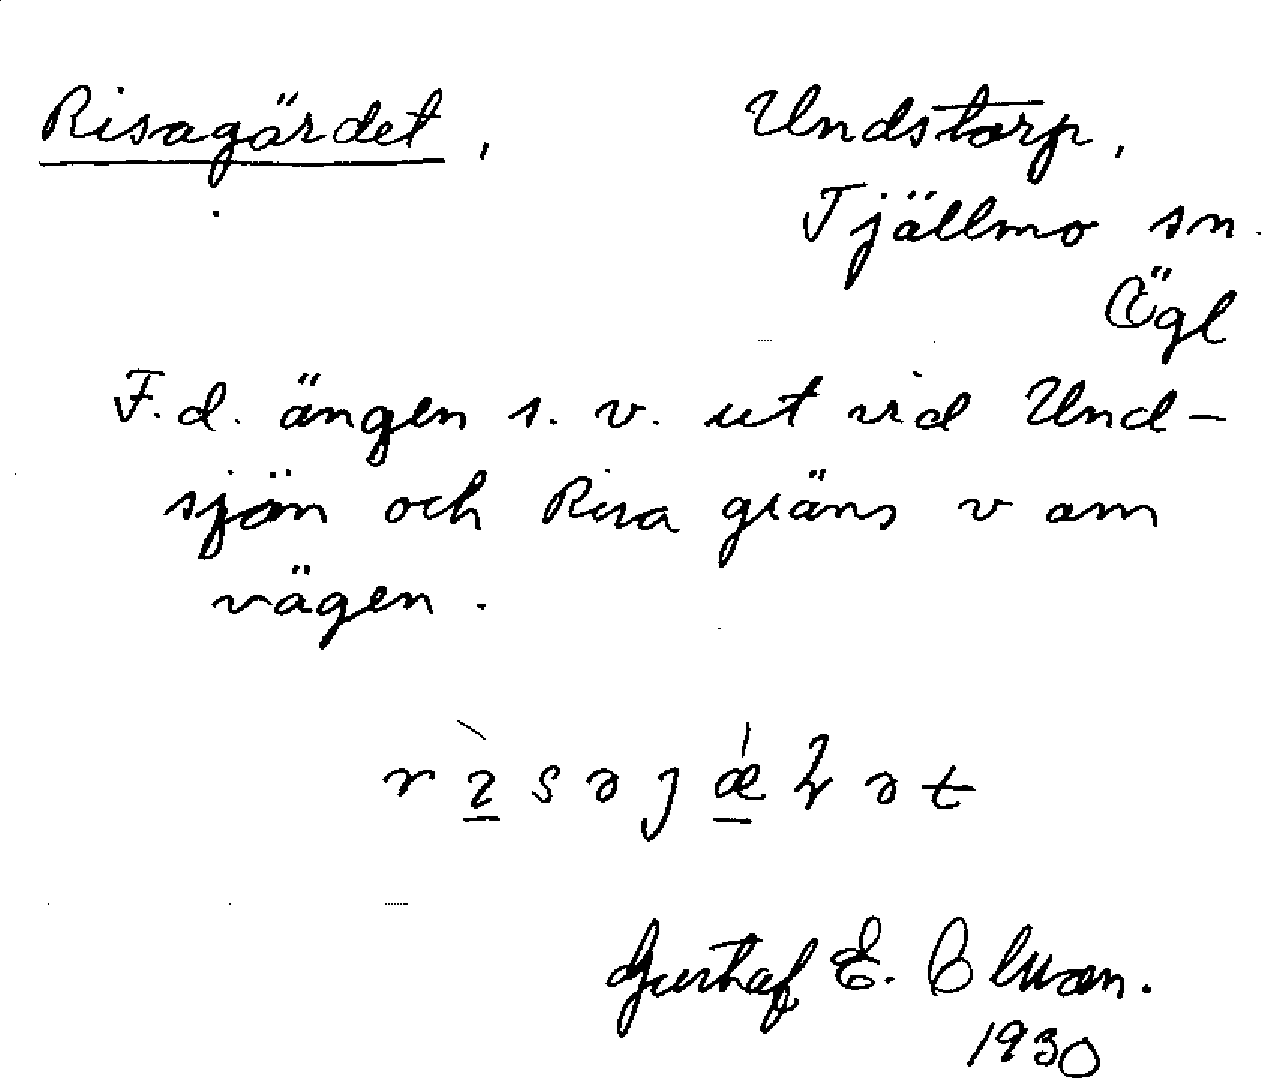 Risagärdet, Undstorp,
Tjällmo sn.
Ögl
F.d. ängen s.v. ut vid Und-
sjön och Risa gräns v om
vägen.
Gustaf E. Olsson.
1930